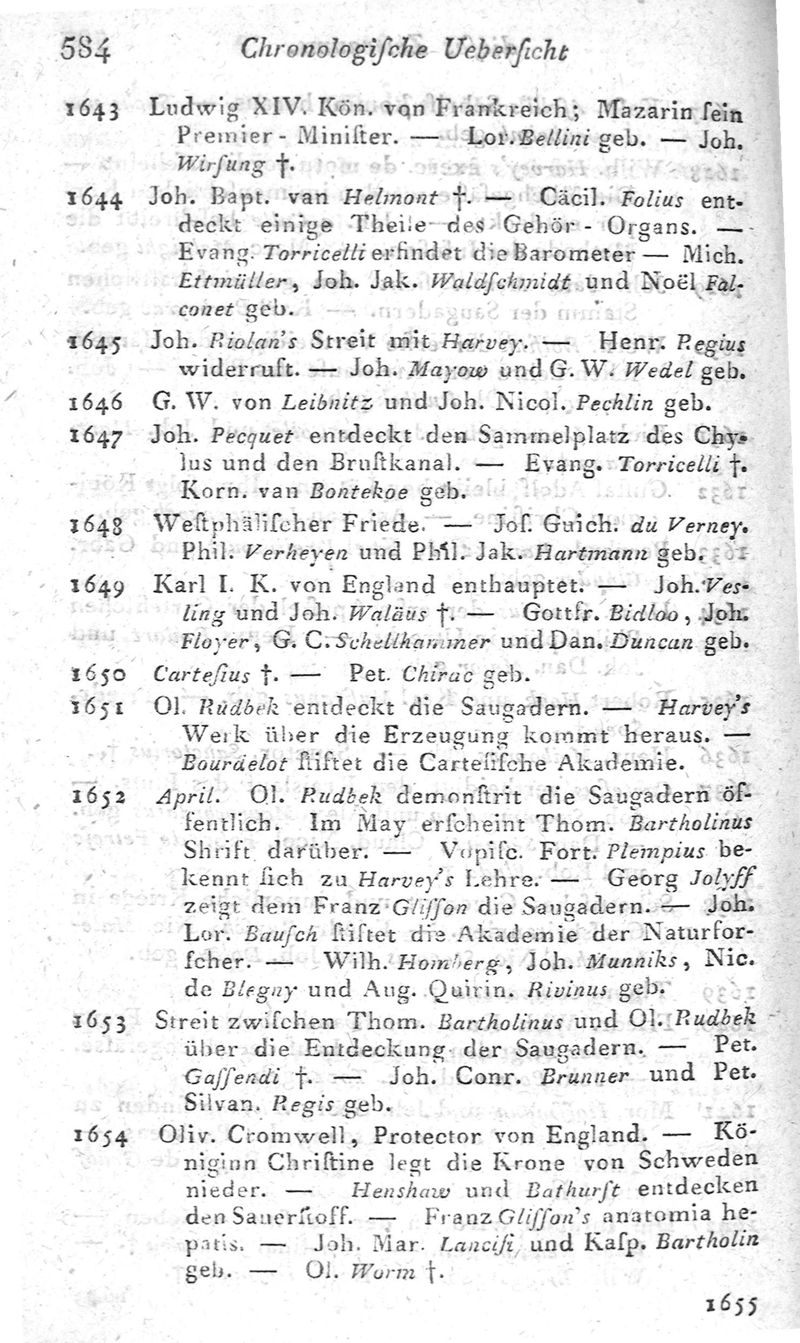 584 Chronologiſche Ueberſicht
1643 Ludwig XIV. Kön. von Frankreich; Mazarin ſein
Premier-Miniſter. — Lor. Bellini geb. — Joh.
Wirſung †.
1644 Joh. Bapt. van Helmont †. — Cäcil. Folius ent-
deckt einige Theile des Gehör-Organs. —
Evang. Torricelli erfindet die Barometer — Mich.
Ettmüller, Joh. Jak. Waldſchmidt und Noël Fal-
conet geb.
1645 Joh. Riolan's Streit mit Harvey. — Henr. Regius
widerruft. — Joh. Mayow und G. W. Wedel geb.
1646 G. W. von Leibnitz und Joh. Nicol. Pechlin geb.
1647 Joh. Pecquet entdeckt den Sammelplatz des Chy-
lus und den Bruſtkanal. — Evang. Torricelli †.
Korn. van Bontekoe geb.
1648 Weſtphäliſcher Friede. — Joſ. Guich. du Verney,
Phil. Verheyen und Phil. Jak. Hartmann geb.
1649 Karl I. K. von England enthauptet. — Joh. Ves-
ling und Joh. Waläus †. — Gottfr. Bidloo, Joh.
Floyer, G. C. Schellhammer und Dan. Duncan geb.
1650 Carteſius †. — Pet. Chirac geb.
1651 Ol. Rudbek entdeckt die Saugadern. — Harvey's
Werk über die Erzeugung kommt heraus. —
Bourdelot ſtiftet die Carteſiſche Akademie.
1652 April. Ol. Rudbek demonſtrit die Saugadern öf-
fentlich. Im May erſcheint Thom. Bartholinus
Shrift darüber. — Vopiſc. Fort. Plempius be-
kennt ſich zu Harvey's Lehre. — Georg Jolyff
zeigt dem Franz Gliſſon die Saugadern. — Joh.
Lor. Bauſch ſtiftet die Akademie der Naturfor-
ſcher. — Wilh. Homberg, Joh. Munniks, Nic.
de Blegny und Aug. Quirin. Rivinus geb.
1653 Streit zwiſchen Thom. Bartholinus und Ol. Rudbek
über die Entdeckung der Saugadern. — Pet.
Gaſſendi †. — Joh. Conr. Brunner und Pet.
Silvan. Regis geb.
1654 Oliv. Cromwell, Protector von England. — Kö-
niginn Chriſtine legt die Krone von Schweden
nieder. — Henshaw und Bathurſt entdecken
den Sauerſtoff. — Franz Gliſſon's anatomia he-
patis. — Joh. Mar. Lanciſi und Kaſp. Bartholin
geb. — Ol. Worm †.
1655